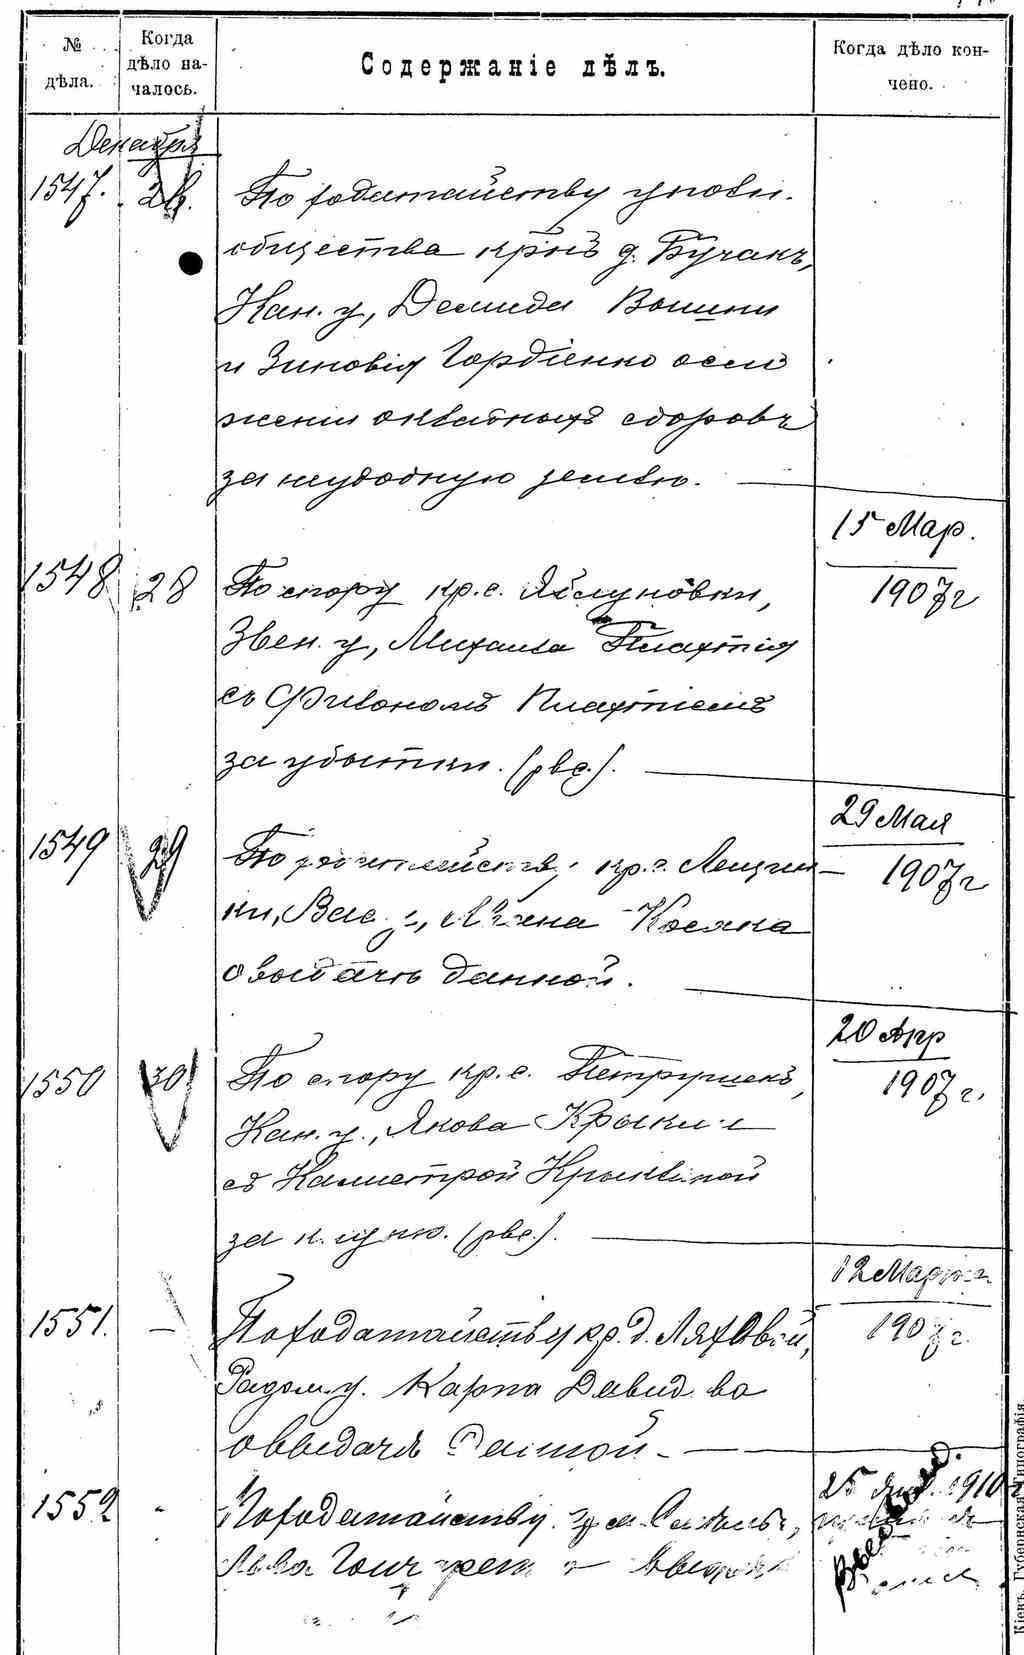 № дѣла.
Когда дѣло началось.
Содержаніе дѣлъ.
Когда дѣло кончено.
Декабря
1547. 28. По ходатайству уполн.
общества крнъ д. Бучакъ,
Кан. у, Демида
и Зиновія Гордіенко о сло
женіи окладныхъ сборовъ
за неудобную землю.
15 Мар.
1907 г
1548 28 По спору кр. с. Яблуновки,
Звен. у, Михаила Плахтія
съ Филономъ Плахтіемъ
за убытки. (рвс.).
29 Мая
1907 г
1549 29 По ходатайству кр. с. Лещин
ки, Вас. у, Косяка
о выдачѣ данной.
20 Апр
1907 г.
1550 30 По спору кр. с. Петрушекъ,
Кан. у., Якова
съ Калистрой Крыкливой
за клуню. (рвс.).
12 Марта
1907 г.
1551. — По ходатайству кр. д. Ляховой,
Радом. у. Карпа Давид ва
о выдачѣ данной
25 Янв. 1910 г
1552 По ходатайству
Льва
Кіевъ. Губернская Типографія.